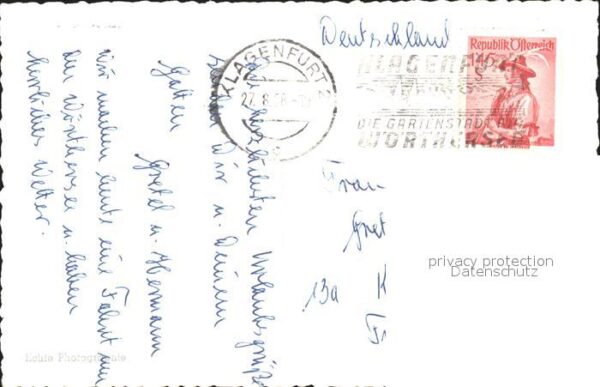 Deutschland
Republik Österreich
KLAGENFURT 2
27.8.58
KLAGENFURT
DIE GARTENSTADT AM
WÖRTHERSEE
Die herzlichsten Urlaubsgrüße
Dir u. Deinem
Gatten
Gretel u. Hermann
Wir machen heute eine Fahrt um
den Wörthersee u. haben
herrliches Wetter.
Frau
Gret
13a K
privacy protection
Datenschutz
Echte Photographie